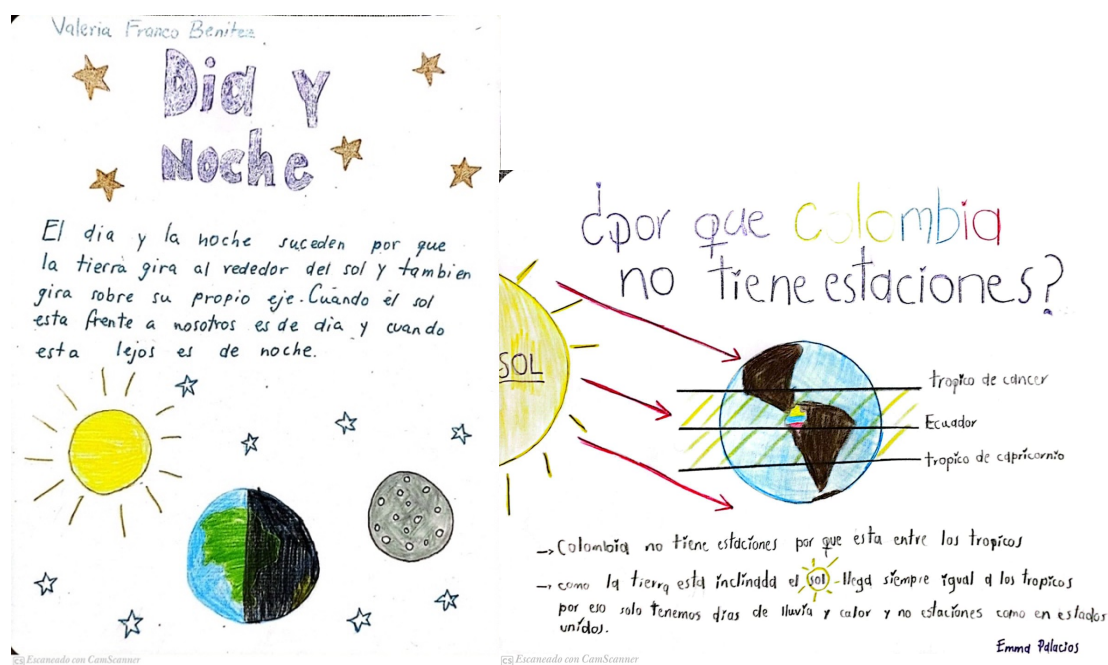 Valeria Franco Benitez
Dia y
Noche
El dia y la noche suceden por que
la tierra gira al rededor del sol y tambien
gira sobre su propio eje. Cuando el sol
esta frente a nosotros es de dia y cuando
esta lejos es de noche.
Escaneado con CamScanner
¿por que colombia
no tiene estaciones?
SOL
tropico de cancer
Ecuador
tropico de capricornio
→ Colombia no tiene estaciones por que esta entre los tropicos
→ como la tierra esta inclinada el sol llega siempre igual a los tropicos
por eso solo tenemos dias de lluvia y calor y no estaciones como en estados
unidos.
Emma Palacios
CS Escaneado con CamScanner